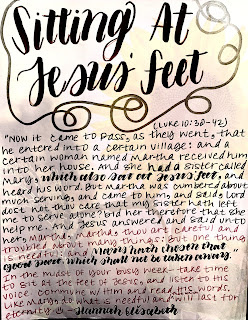 Sitting At
Jesus' feet
(Luke 10:38-42)
"Now it came to pass, as they went, that
he entered into a certain village: and a
certain woman named Martha received him
into her house. And she had a sister called
Mary, which also sat at Jesus' feet, and
heard his word. But Martha was cumbered about
much serving, and came to him, and said, Lord
dost not thou care that my sister hath left
me to serve alone? bid her therefore that she
help me. And Jesus answered and said unto
her, Martha, Martha, thou art careful and
troubled about many things: But one thing
is needful: and Mary hath chosen that
good part, which shall not be taken away."
In the midst of your busy week - take time
to sit at the feet of Jesus, and listen to His
voice. Commune w/ Him and read HIS words.
Like Mary, do what is needful and will last for
eternity
- Hannah Elisabeth